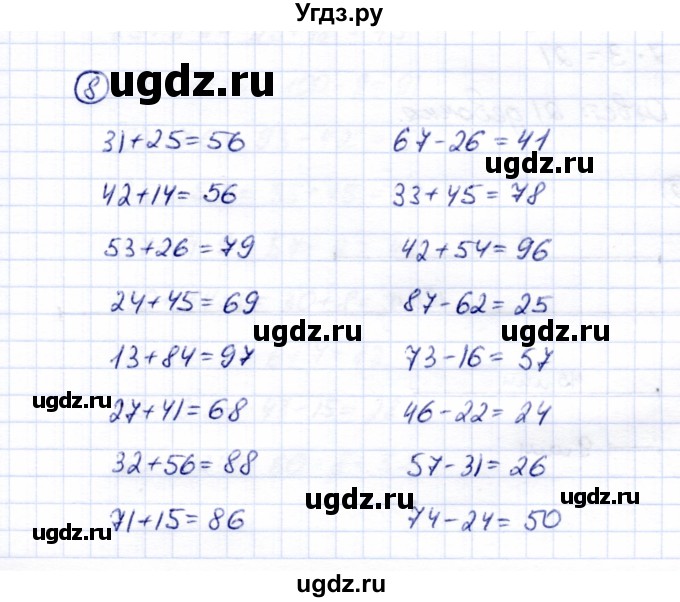 Угдз.ру
8 ugdz.ru
31+25=56
67-26=41
ugdz.ru
42+14=56
33+45=78
53+26=79
42+54=96
24+45=69
87-62=25
ugdz.ru
13+84=97
73-16=57
ugdz.ru
27+41=68
46-22=24
32+56=88
57-31=26
ugdz.ru
ugdz.ru
71+15=86
74-24=50
ugdz.ru
ugdz.ru